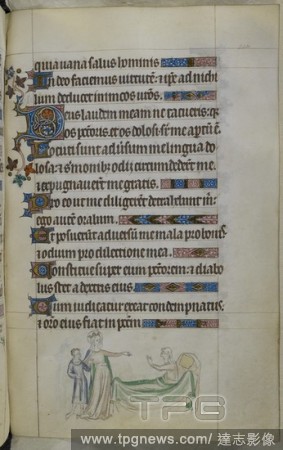 quia uana salus hominis
In deo faciemus uirtutē: et ipē ad nichi
lum deducet inimicos nr̄os.
Deus laudem meam ne tacueris: q̄
os pctoris et os dolosi sr̄ me aptū ē.
Locuti sunt adūsum me lingua do
losa: et s̄monibȝ odij circumdedert me
et expugnauert me gratis.
Pro eo ut me diligerēt detrahebant m̄:
ego autē orabam.
Et posuerūt aduersū me mala pro bonis
et odium pro dilectione mea.
Constitue super eum pctorem: et diabo
lus stet a dextris eius.
Cum iudicatur exeat condempnatus:
et orō eius fiat in pctm̄
TPG
www.tpgnews.com/ 達志影像